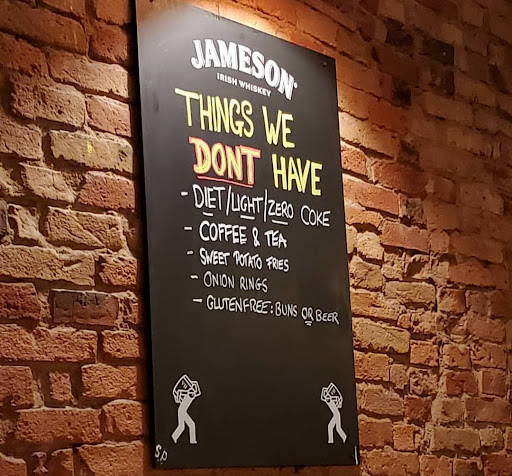 JAMESON
IRISH WHISKEY
THINGS WE
DONT HAVE
- DIET/LIGHT/ZERO COKE
- COFFEE & TEA
- SWEET POTATO FRIES
- ONION RINGS
- GLUTENFREE: BUNS OR BEER
S.P